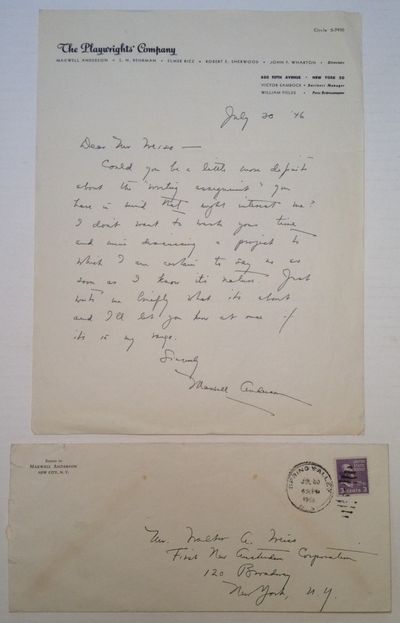 Circle 5-7950
The Playwrights' Company
MAXWELL ANDERSON • S. N. BEHRMAN • ELMER RICE • ROBERT E. SHERWOOD • JOHN F. WHARTON • Directors
630 FIFTH AVENUE • NEW YORK 20
VICTOR SAMROCK • Business Manager
WILLIAM FIELDS • Press Representative
July 30 '46
Dear Mr Weiss —
Could you be a little more definite
about the "writing assignment" you
have in mind that might interest me?
I don't want to waste your time
and mine discussing a project to
which I am certain to say no as
soon as I know its nature. Just
write me briefly what its about
and I'll let you know at once if
its in my range.
Sincerely
Maxwell Anderson
Return to
MAXWELL ANDERSON
NEW CITY, N. Y.
SPRING VALLEY
JUL 30
PM
1946
N.Y.
3 CENTS 3
Mr. Walter A. Weiss
First New Amsterdam Corporation
120 Broadway
New York, N.Y.